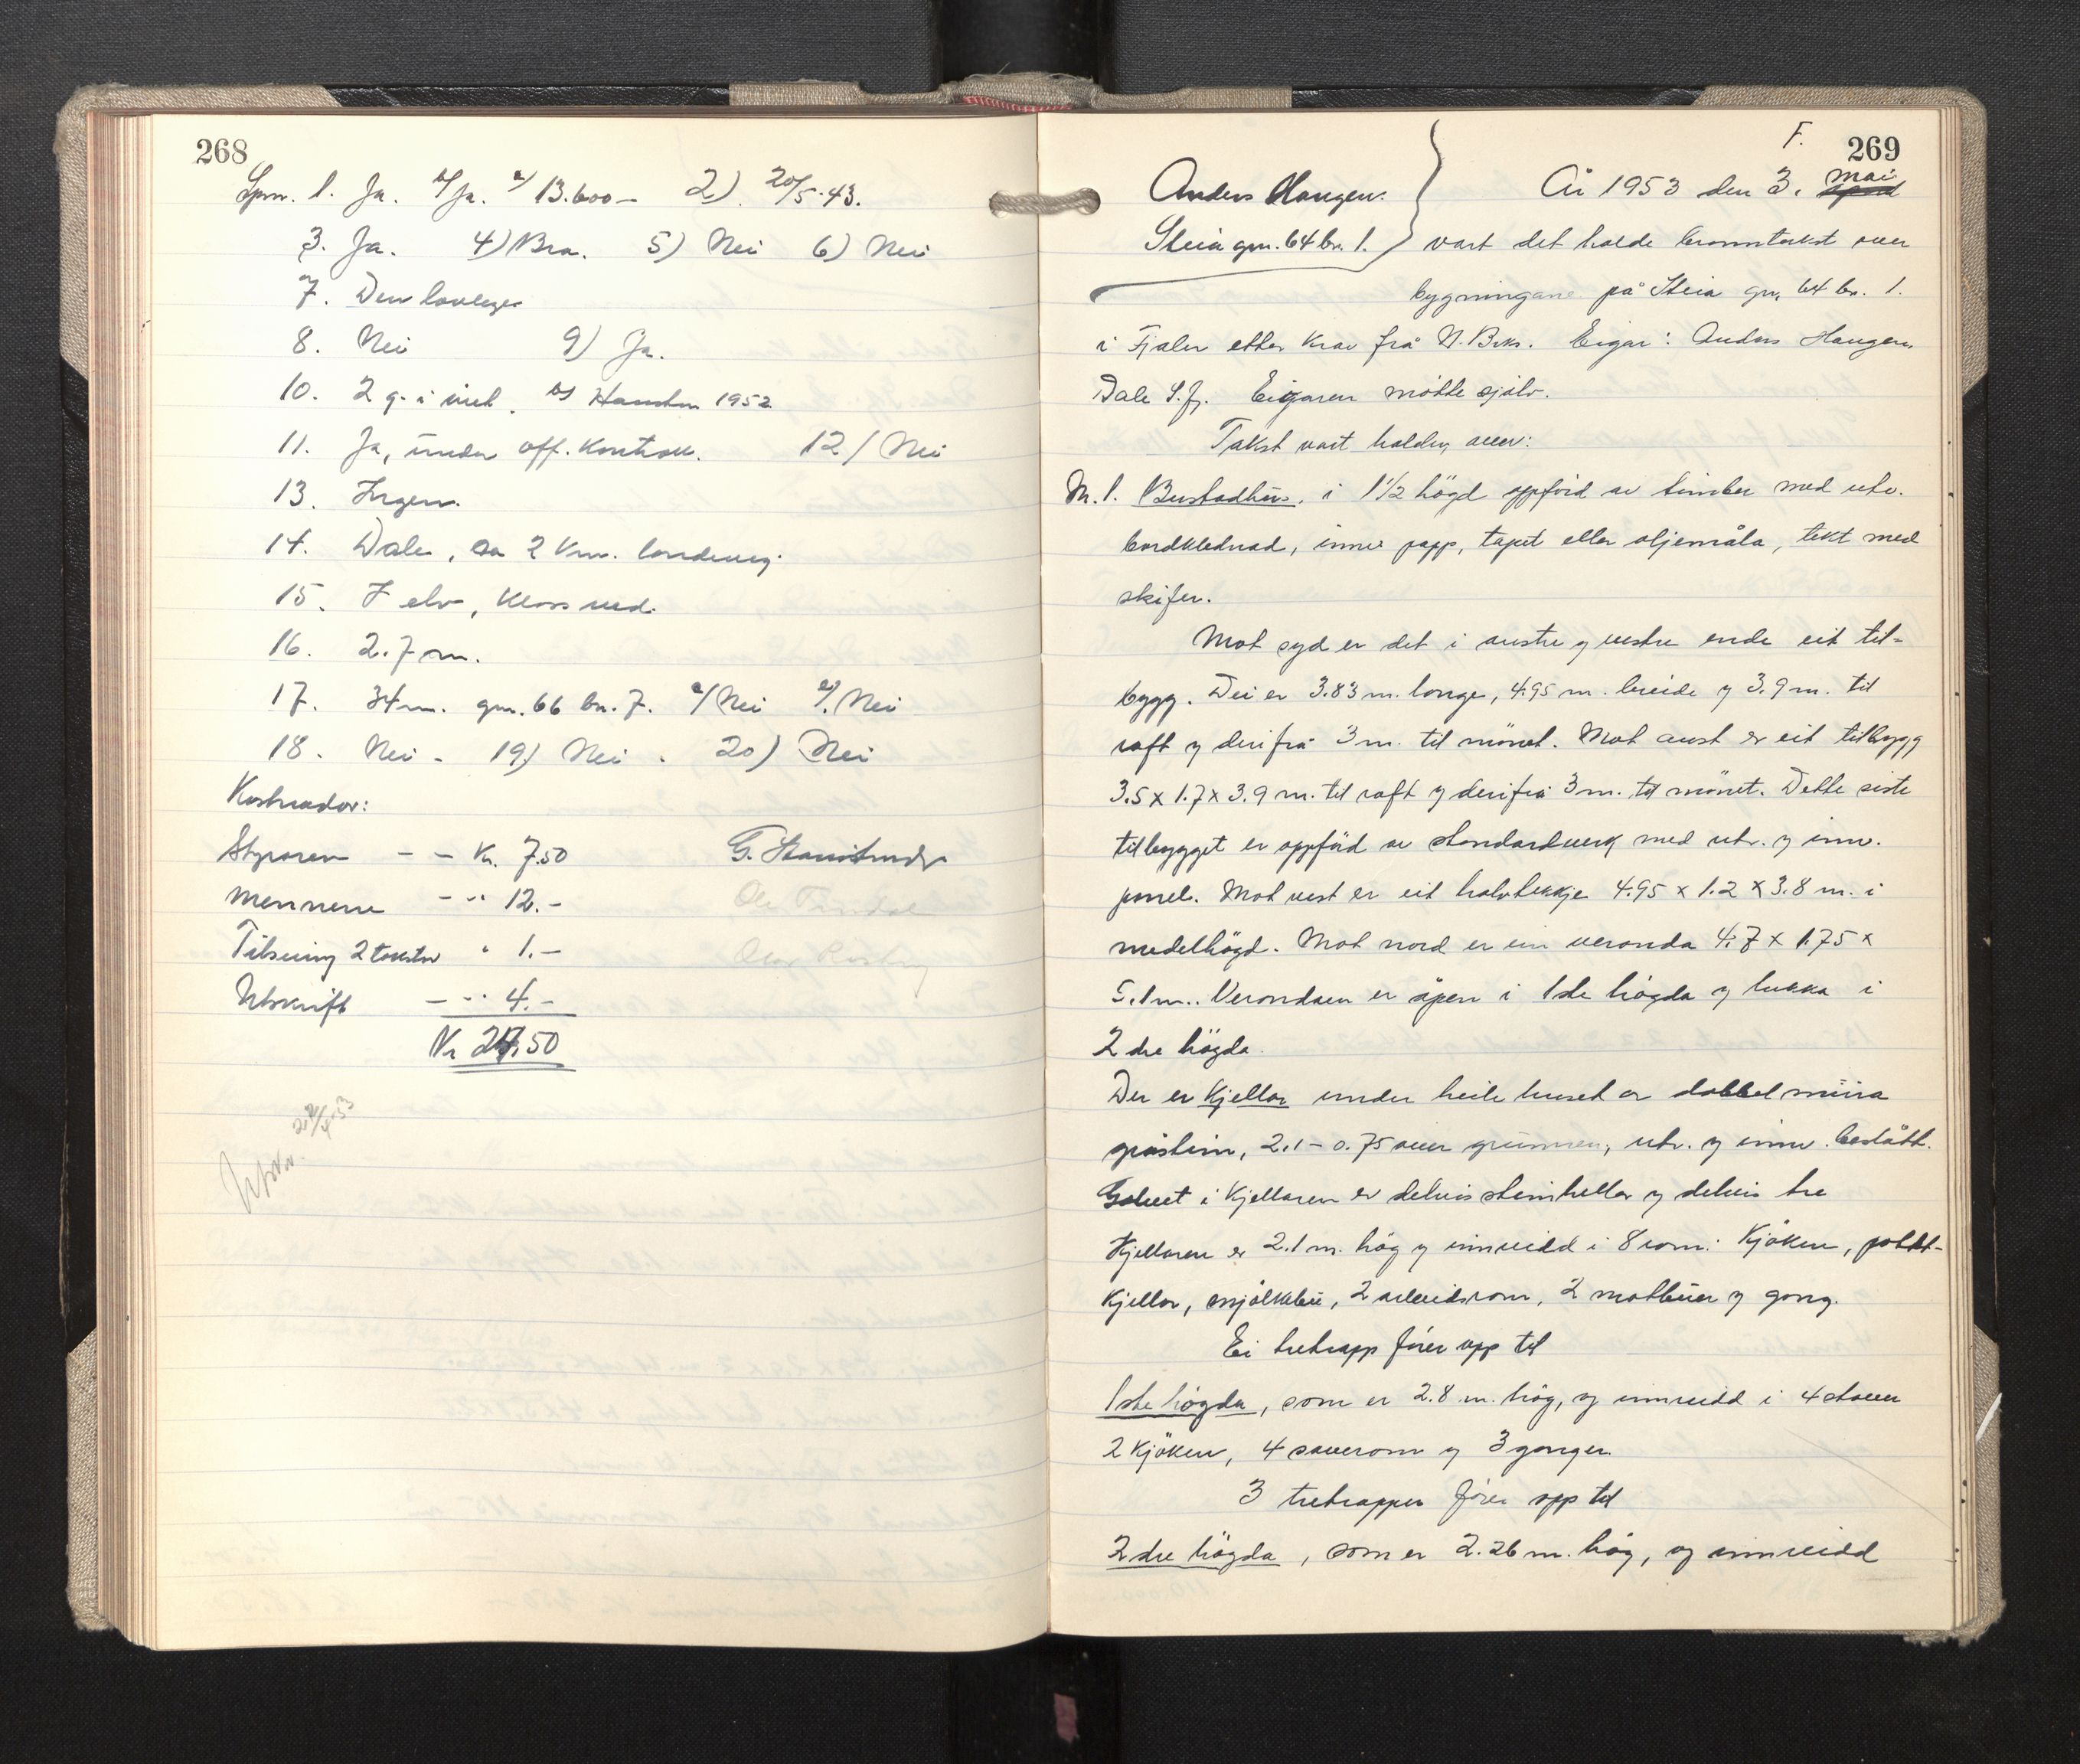 268
Spm. 1. Ja. b/ Ja. c/ 13.600- 2). 20/5-43.
3. Ja. 4) Bra. 5) Nei 6) Nei
7. Den lovlege
8. Nei 9) Ja.
10. 2 g. i året. b) Hausten 1952
11. Ja, under off. Kontroll. 12/ Nei
13. Ingen.
14. Dale, ca 2 Km. landeveg.
15. I elv, Kloss ved.
16. 2.7 m.
17. 34 m. gnr. 66 bn. 7. Nei Nei
18. Nei - 19) Nei . 20) Nei
Kostnader:
Styraren - - Kr. 7.50
Mennene - " 12.-
Tilsening 2 takster " 1.-
Utskrift - - " 4.-
Kr 24,50
Utskr. 53
F.
269
Anders Haugen.
Steia gnr. 64 bn. 1.
År 1953 den 3. mai
vart det halde branntakst over
bygningane på Steia gnr. 64 bn. 1.
i Fjaler etter krav frå N. Brk. Eigar: Anders Haugen,
Dale S.fj. Eigaren møtte sjølv.
Takst vart halden over:
M. 1. Bustadhus, i 1½ högd oppförd av timber med utv.
bordklednad, inne papp, tapet eller oljemåla, tekt med
skifer.
Mot syd er det i austre og vestre ende eit til-
bygg. Dei er 3.83 m. lange, 4.95 m. breide og 3.9 m. til
raft og derifrå 3 m. til mönet. Mot aust er eit tilbygg
3.5 x 1.7 x 3.9 m. til raft og derifrå 3 m. til mönet. Dette siste
tilbygget er oppförd av standardverk med utv. og innv.
panel. Mot vest er eit halvtekkje 4.95 x 1.2 x 3.8 m. i
medelhögd. Mot nord er ein veranda 4.7 x 1.75 x
5.1 m.. Verandaen er åpen i 1ste högda og lukka i
2 dre högda.
Der er Kjellar under heile huset av dobbel mura
gråstein, 2.1 - 0.75 over grunnen, utv. og innv. beslått.
Golvet i Kjellaren er delvis steinheller og delvis tre
Kjellaren er 2.1 m. hög og innreidd i 8 rom: Kjöken, potet-
Kjellar, mjölkebu, 2 arbeidsrom, 2 matbuer og gong.
Ei tretrapp förer opp til
1ste högda, som er 2.8 m. hög, og innreidd i 4 stover
2 Kjöken, 4 soverom og 3 gonger.
3 tretrapper förer opp til
2 dre högda, som er 2.26 m. hög, og innreidd